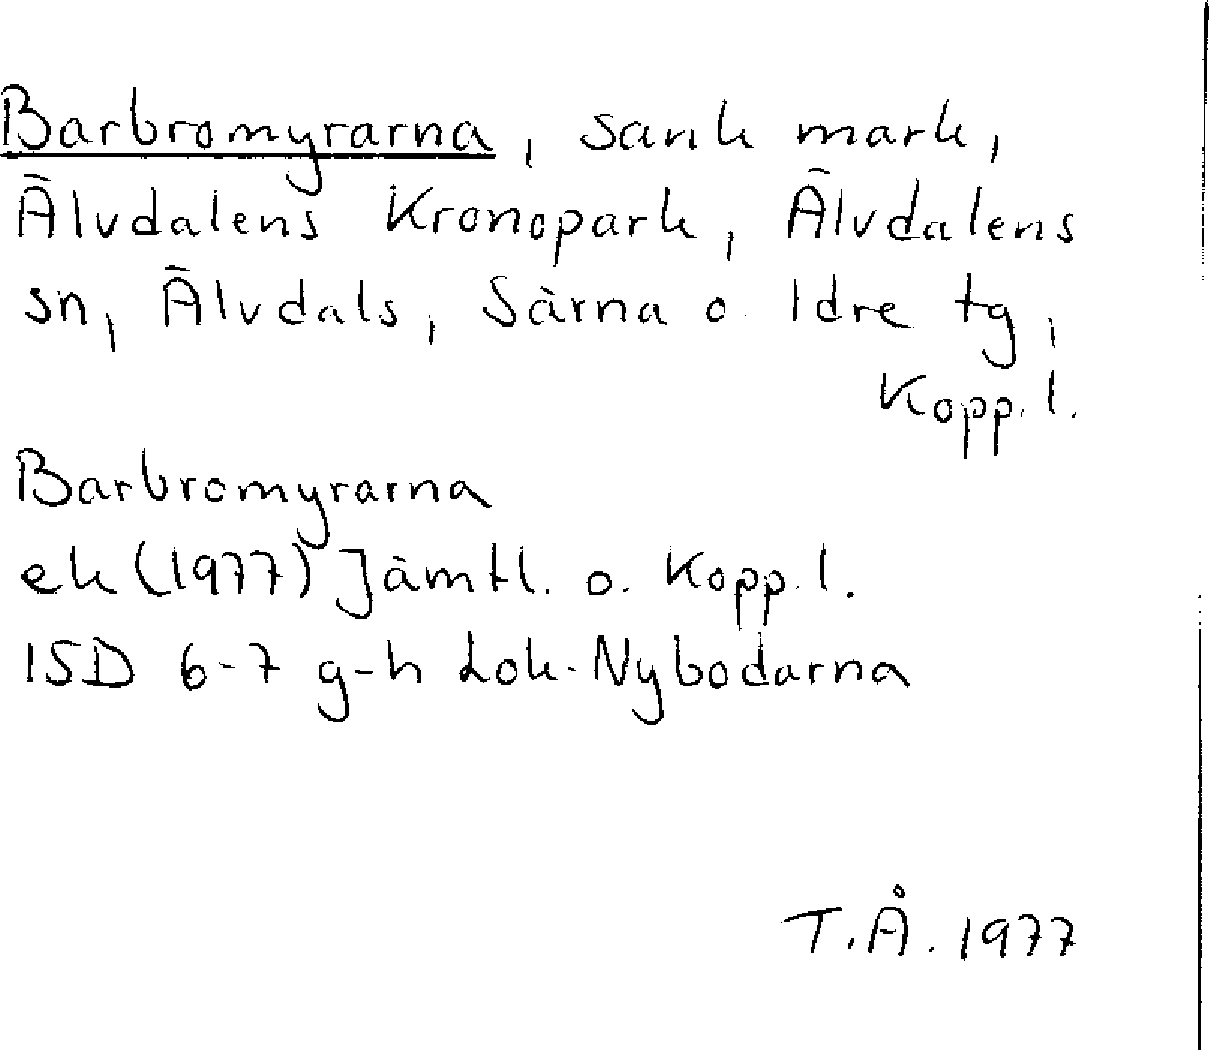 Barbromyrarna, sank mark,
Älvdalens Kronopark, Älvdalens
sn, Älvdals, Särna o Idre tg,
Kopp. l.
Barbromyrarna
ek (1977) Jämtl. o. Kopp. l.
15D 6-7 g-h Lok-Nybodarna
T.Å. 1977